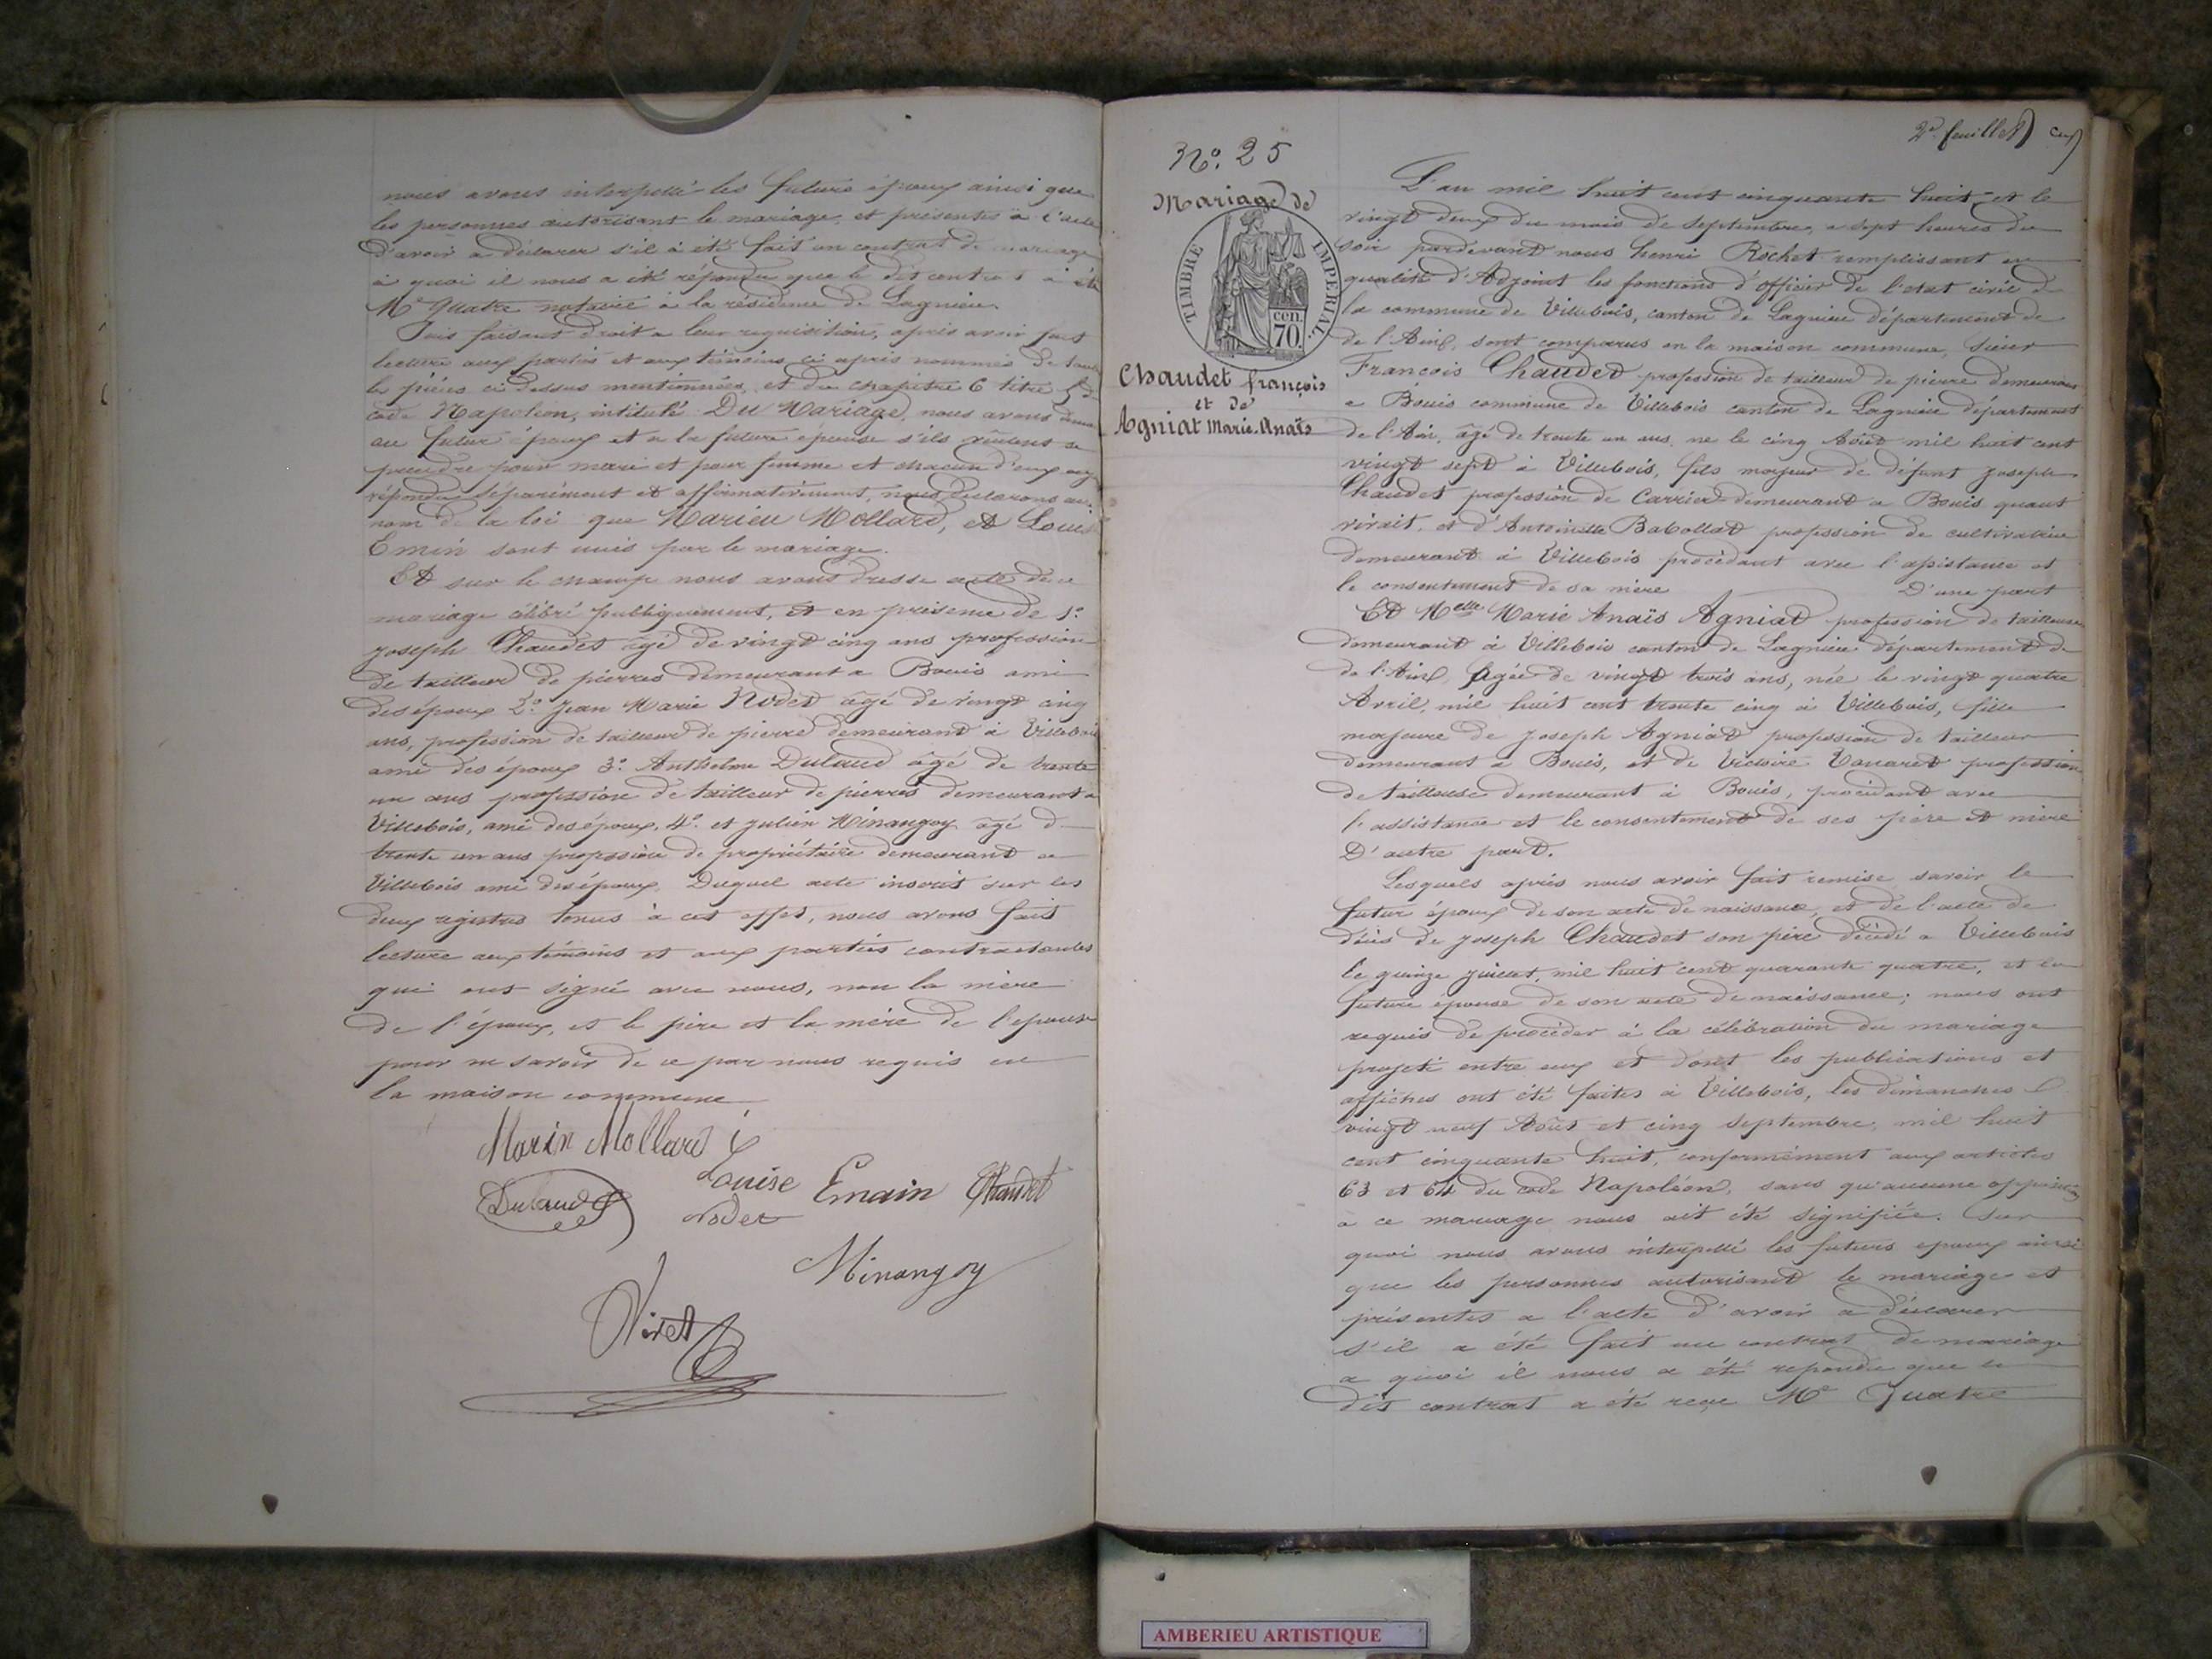 nous avons interpellé les futurs époux ainsi que
les personnes autorisant le mariage, et présentes à l'acte
d'avoir a déclarer s'il à été fait un contrat de mariage
à quoi il nous a été répondu que le dit contrat à été
Me Quatre notaire à la résidence de Lagnieu
Puis faisant droit a leur requisition, après avoir fait
lecture aux parties et aux témoins ci après nommés de toutes
les pièces ci dessus mentionnées, et du chapitre 6 titre 5 du
code Napoléon, intitulé Du Mariage, nous avons demandé
au futur époux et a la future épouse s'ils veulent se
prendre pour mari et pour femme et chacun d'eux ayant
répondu séparément et affirmativement, nous déclarons au
nom de la loi que Marieu Mollard, et Louise
Emin sont unis par le mariage.
Et sur le champ nous avons dressé acte de ce
mariage célébré publiquement, et en présence de 1o
Joseph Chaudet âgé de vingt cinq ans profession
de tailleur de pierres demeurant a Bouis ami
des époux 2o Jean Marie Nodet âgé de vingt cinq
ans, profession de tailleur de pierre demeurant à Villebois
ami des époux 3o Anthelme Dulaud âgé de trente
un ans profession de tailleur de pierres demeurant a
Villebois, ami des époux, 4o et Julien Minangoy âgé de
trente un ans profession de propriétaire demeurant a
Villebois ami des époux, Duquel acte inscrit sur les
deux registres tenus à cet effet, nous avons fait
lecture aux témoins et aux parties contractantes
qui ont signé avec nous, non la mère
de l'époux, et le père et la mère de l'épouse
pour ne savoir de ce par nous requis en
la maison commune
Marin Mollard
Louise Emain Chaudet
Dulaud Nodet
Minangoy
Viret
2e feuillet
No. 25
Mariage de
TIMBRE IMPERIAL
cen.
70.
Chaudet françois
et de
Agniat Marie-Anaïs
L'an mil huit cent cinquante huit et le
vingt deux du mois de septembre, a sept heures du
soir pardevant nous henri Rochet remplissant en
qualité d'Adjoint les fonctions d'officier de l'état civil de
la commune de Villebois, canton de Lagnieu département de
de l'Ain, sont comparus en la maison commune, Sieur
Francois Chaudet profession de tailleur de pierre demeurant
a Bouis commune de Villebois canton de Lagnieu département
de l'Ain, âgé de trente un ans, né le cinq Août mil huit cent
vingt sept à Villebois, fils majeur de défunt Joseph
Chaudet profession de Carrier demeurant a Bouis quant
vivait, et d'Antoinette Babollat profession de cultivatrice
demeurant à Villebois procédant avec l'assistance et
le consentement de sa mère D'une part
Et Melle Marie Anaïs Agniat profession de tailleuse
demeurant à Villebois canton de Lagnieu département de
de l'Ain, Agée de vingt trois ans, née le vingt quatre
Avril, mil huit cent trente cinq à Villebois, fille
majeure de Joseph Agniat profession de tailleur
demeurant a Bouis, et de Victoire Vanaret profession
de tailleuse demeurant à Bouis, procédant avec
l'assistance et le consentement de ses père et mère
D'autre part.
Lesquels après nous avoir fait remise savoir le
futur époux de son acte de naissance, et de l'acte de
décès de Joseph Chaudet son père décédé a Villebois
le quinze juillet, mil huit cent quarante quatre, et la
future épouse de son acte de naissance; nous ont
requis de procéder à la célébration du mariage
projeté entre eux et dont les publications et
affiches ont été faites à Villebois, les dimanches
vingt neuf Août et cinq Septembre, mil huit
cent cinquante huit, conformément aux articles
63 et 64 du code Napoléon, sans qu'aucune opposition
à ce mariage nous ait été signifiée. Sur
quoi nous avons interpellé les futurs époux ainsi
que les personnes autorisant le mariage et
présentes a l'acte d'avoir a déclarer
s'il a été fait un contrat de mariage
a quoi il nous a été répondu que le
dit contrat a été reçu Me Quatre
AMBERIEU ARTISTIQUE